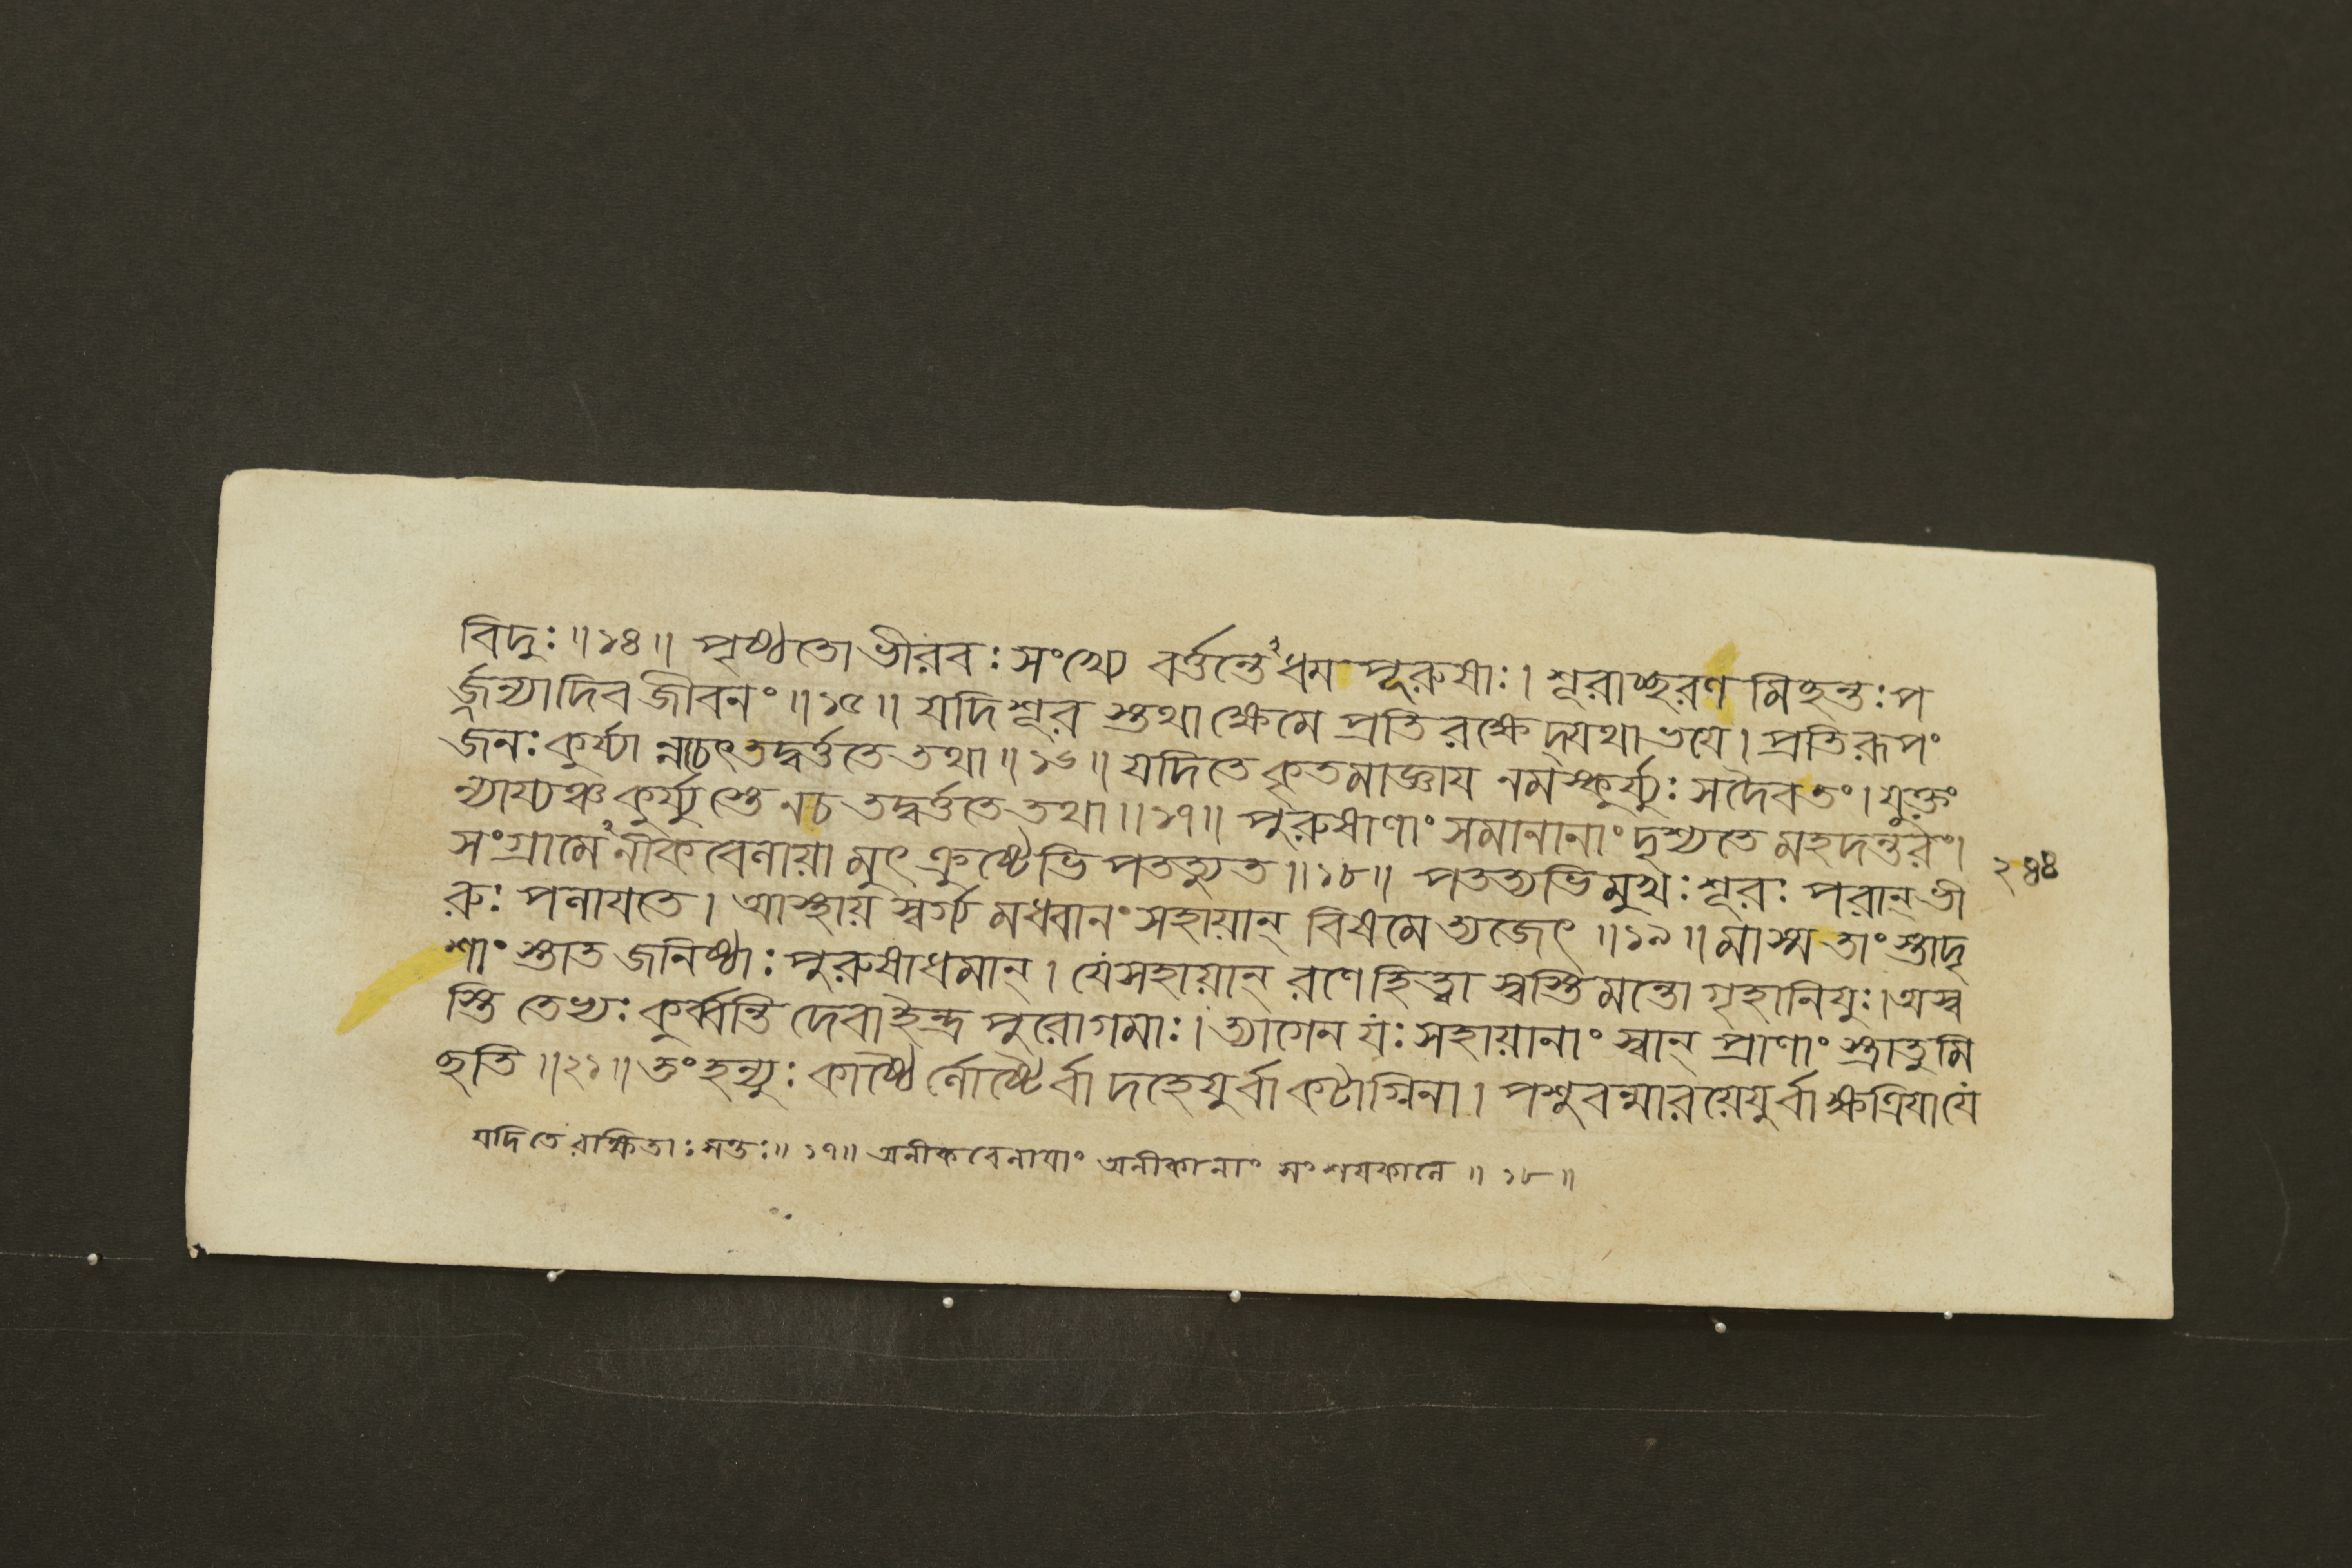 বিদুঃ॥১৪॥ পৃষ্ঠতো ভীরবঃ সংখ্যে বর্ত্তন্তেঽধম পূরুষাঃ। শূরাচ্ছরণ মিচ্ছন্তঃ প
র্জ্জন্যাদিব জীবনং॥১৫॥ যদি শূর স্তথা ক্ষেমে প্রতি রক্ষেদ্যথা ভযে। প্রতিরূপং
জনঃ কুর্য্যা ন্নচেৎ তদ্বর্ত্ততে তথা॥১৬॥ যদি তে কৃতমাজ্ঞায নমস্কুর্য্যুঃ সদৈবতং। যুক্তং
ন্যায্যঞ্চ কুর্য্যু স্তে নচ তদ্বর্ত্ততে তথা॥১৭॥ পুরুষাণাং সমানানাং দৃশ্যতে মহদন্তরং।
সংগ্রামেঽনীকবেলায়া মুৎক্রুষ্টেভি পতত্যুত॥১৮॥ পতত্যভিমুখঃ শূরঃ পরান্ ভী
রুঃ পলাযতে। আস্থায় স্বর্গ্য মধ্বানং সহায়ান্ বিষমে ত্যজেৎ॥১৯॥ মাস্ম তাং স্তাদৃ
শাং স্তাত জনিষ্ঠাঃ পুরুষাধমান্। যে সহায়ান্ রণে হিত্বা স্বস্তিমন্তো গৃহানিযুঃ। অস্ব
স্তি তেভ্যঃ কুর্ব্বন্তি দেবা ইন্দ্র পুরোগমাঃ। ত্যাগেন যঃ সহায়ানাং স্বান্ প্রাণাং স্ত্রাতুমি
চ্ছতি॥২১॥ তং হন্যুঃ কাষ্ঠৈ র্লোষ্ঠৈর্বা দহেযুর্বা কটাগ্নিনা। পশুবন্মারয়েযুর্বা ক্ষত্রিযা যে
২৪৪
যদি তে রক্ষিতাঃ সন্তঃ॥১৭॥ অনীকবেলাযাং অনীকানাং সংশযকালে॥১৮॥